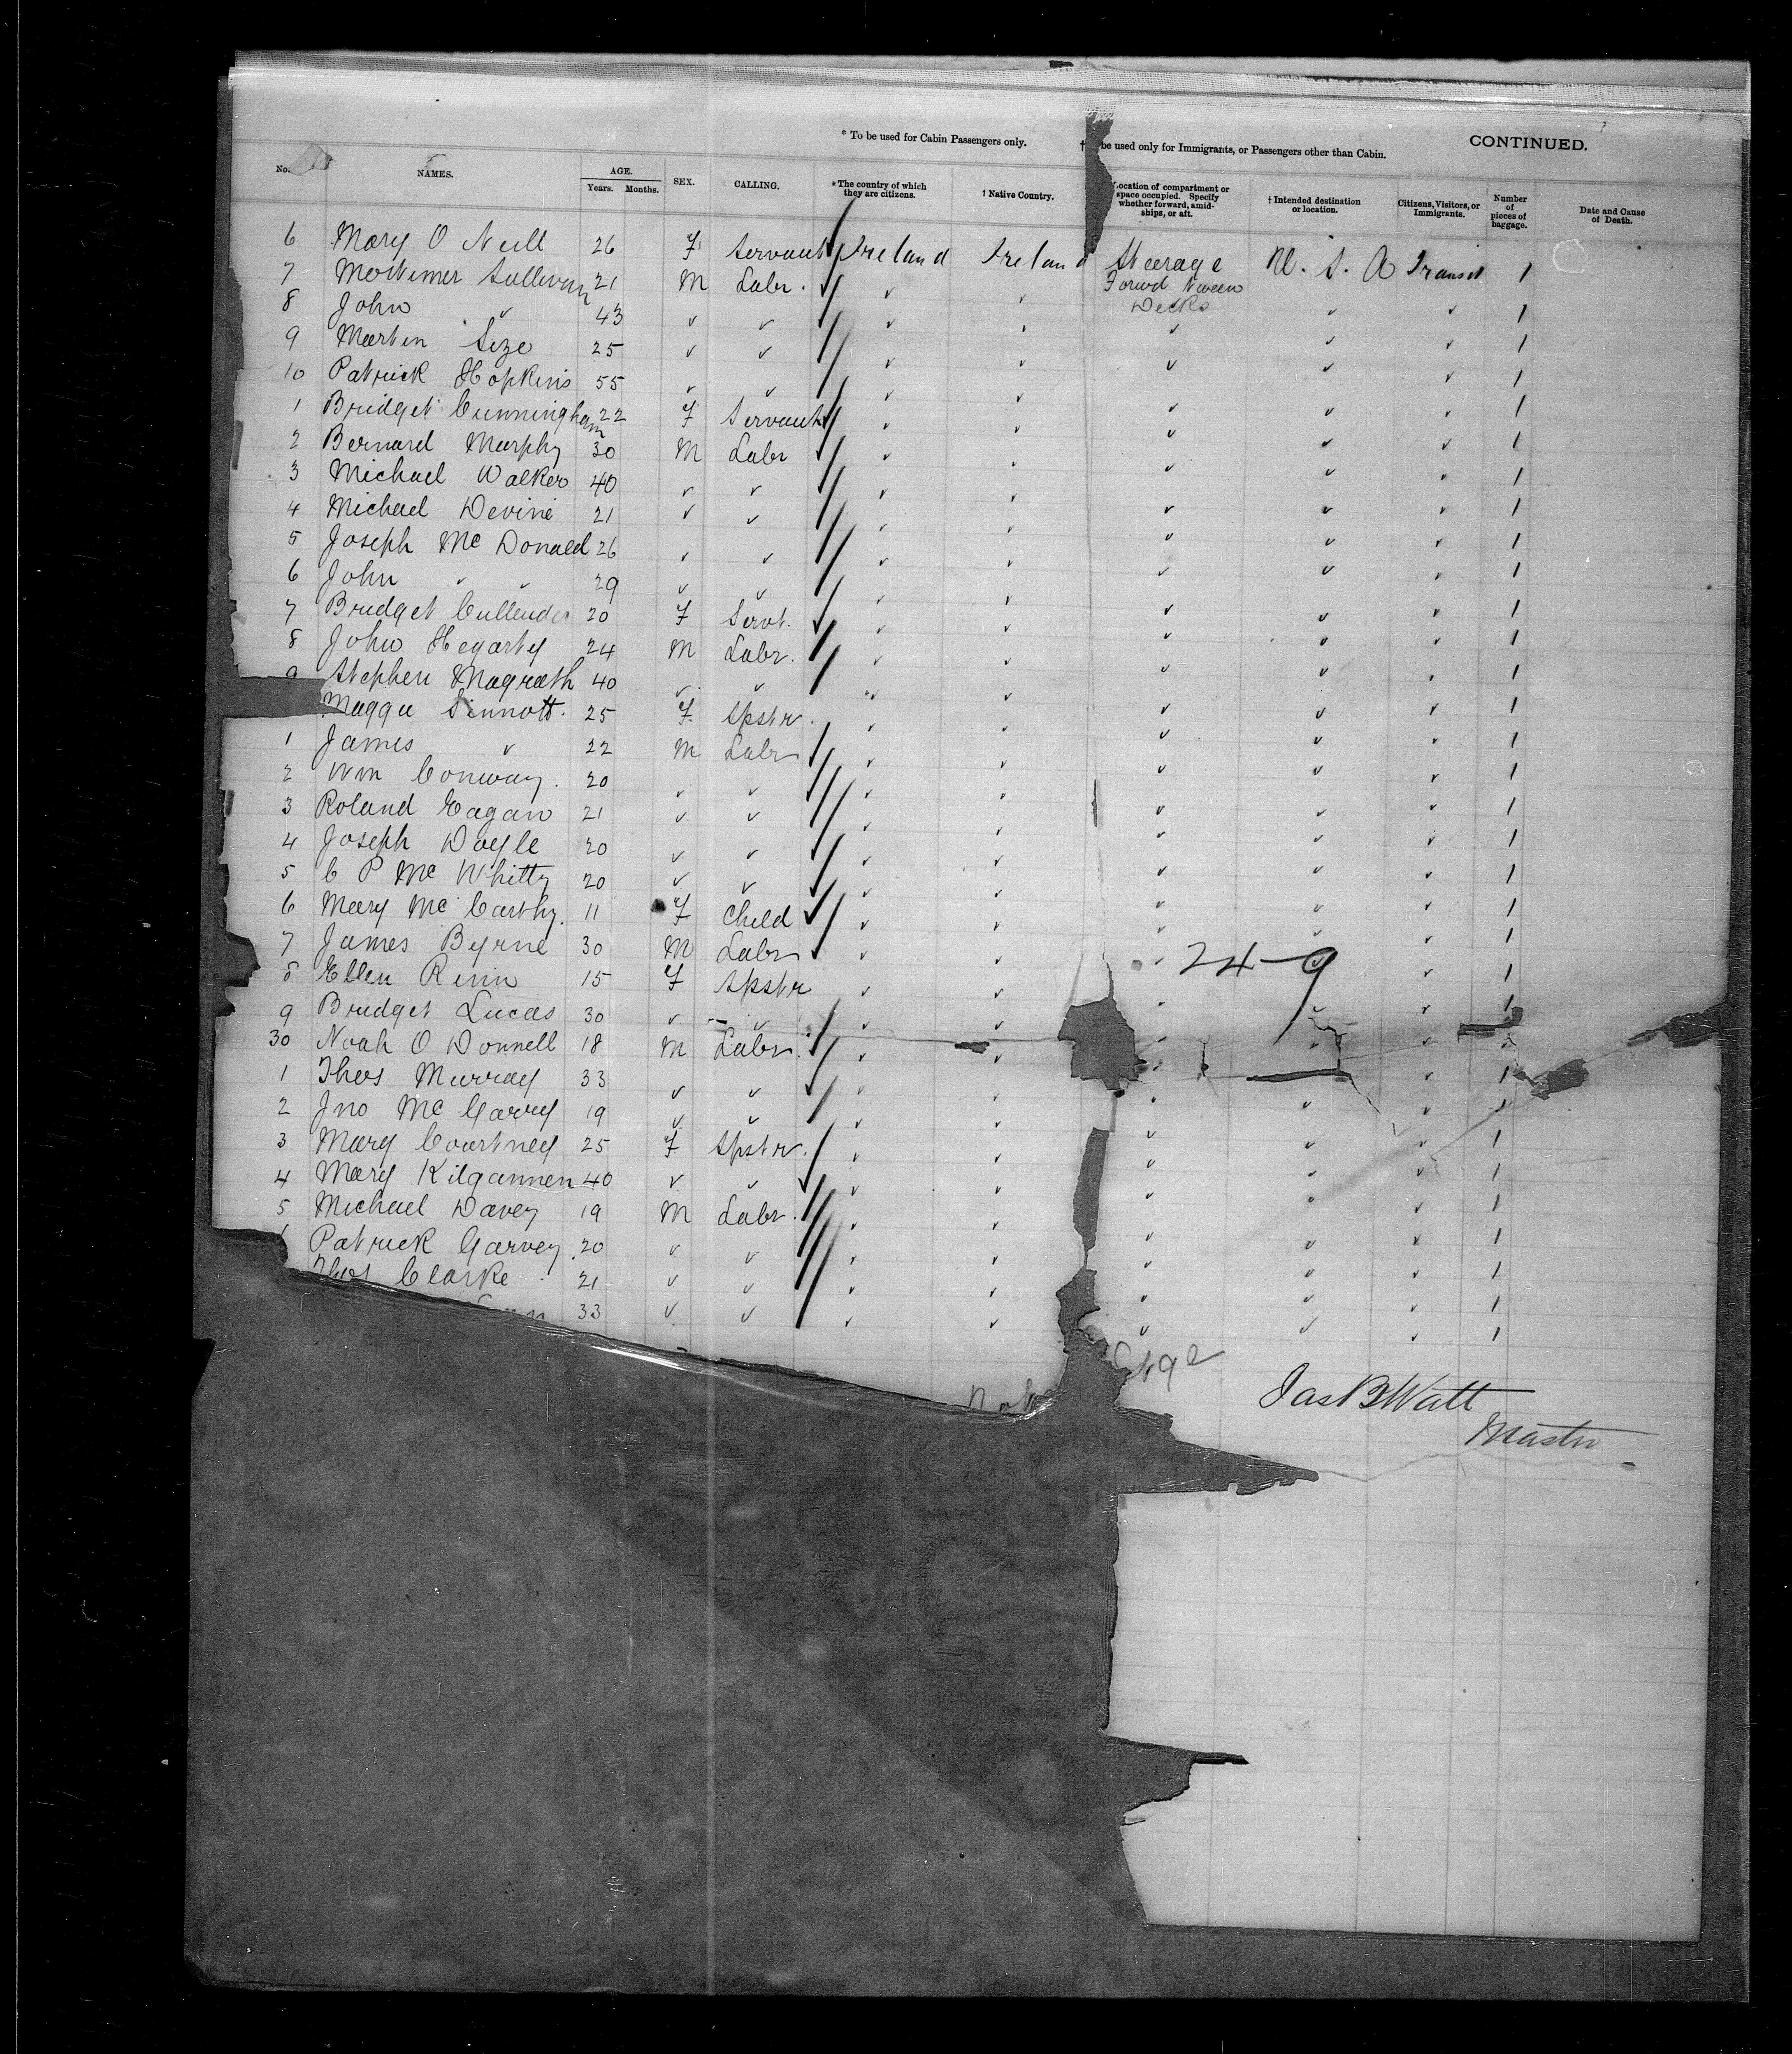 * To be used for Cabin Passengers only. † be used only for Immigrants, or Passengers other than Cabin. CONTINUED.
No. NAMES. AGE. Years. Months. SEX. CALLING. * The country of which they are citizens. † Native Country. Location of compartment or space occupied. Specify whether forward, amidships, or aft. † Intended destination or location. Citizens, Visitors, or Immigrants. Number of pieces of baggage. Date and Cause of Death.
6 Mary O Neill 26 F Servant Ireland Ireland Steerage U. S. A Transit 1
7 Mortimer Sullivan 21 M Labr. ✓ ✓ Forwd Tween Decks ✓ ✓ 1
8 John ✓ 43 ✓ ✓ ✓ ✓ ✓ ✓ ✓ 1
9 Marten Size 25 ✓ ✓ ✓ ✓ ✓ ✓ ✓ 1
10 Patrick Hopkins 55 ✓ ✓ ✓ ✓ ✓ ✓ ✓ 1
1 Bridget Cunningham 22 F Servant ✓ ✓ ✓ ✓ ✓ 1
2 Bernard Murphy 30 M Labr ✓ ✓ ✓ ✓ ✓ 1
3 Michael Walker 40 ✓ ✓ ✓ ✓ ✓ ✓ ✓ 1
4 Michael Devine 21 ✓ ✓ ✓ ✓ ✓ ✓ ✓ 1
5 Joseph Mc Donald 26 ✓ ✓ ✓ ✓ ✓ ✓ ✓ 1
6 John ✓ ✓ 29 ✓ ✓ ✓ ✓ ✓ ✓ ✓ 1
7 Bridget Cullender 20 F Servt. ✓ ✓ ✓ ✓ ✓ 1
8 John Hegarty 24 M Labr. ✓ ✓ ✓ ✓ ✓ 1
9 Stephen Magrath 40 ✓ ✓ ✓ ✓ ✓ ✓ ✓ 1
Maggie Sinnott. 25 F. Spstr. ✓ ✓ ✓ ✓ ✓ 1
1 James ✓ 22 M Labr ✓ ✓ ✓ ✓ ✓ 1
2 Wm Conway. 20 ✓ ✓ ✓ ✓ ✓ ✓ ✓ 1
3 Roland Eagan 21 ✓ ✓ ✓ ✓ ✓ ✓ ✓ 1
4 Joseph Doyle 20 ✓ ✓ ✓ ✓ ✓ ✓ ✓ 1
5 C P Mc Whitty 20 ✓ ✓ ✓ ✓ ✓ ✓ ✓ 1
6 Mary Mc Carthy. 11 F Child ✓ ✓ ✓ ✓ ✓ 1
7 James Byrne 30 M Labr ✓ ✓ ✓ ✓ ✓ 1
24-9
8 Ellen Rinn 15 F Spstr ✓ ✓ ✓ ✓ ✓ 1
9 Bridget Lucas 30 ✓ ✓ ✓ ✓ ✓ ✓ ✓ 1
30 Noah O Donnell 18 M Labr. ✓ ✓ ✓ ✓ ✓
1 Thos Murray 33 ✓ ✓ ✓ ✓ ✓ ✓ 1
2 Jno Mc Garry 19 ✓ ✓ ✓ ✓ ✓ ✓ ✓ 1
3 Mary Courtney 25 F Spstr. ✓ ✓ ✓ ✓ ✓ 1
4 Mary Kilgannen 40 ✓ ✓ ✓ ✓ ✓ ✓ ✓ 1
5 Michael Davey 19 M Labr. ✓ ✓ ✓ ✓ ✓ 1
Patrick Garvey. 20 ✓ ✓ ✓ ✓ ✓ ✓ ✓ 1
Thos Clarke 21 ✓ ✓ ✓ ✓ ✓ ✓ ✓ 1
33 ✓ ✓ ✓ ✓ ✓ ✓ ✓ 1
Jas B Watt
Master